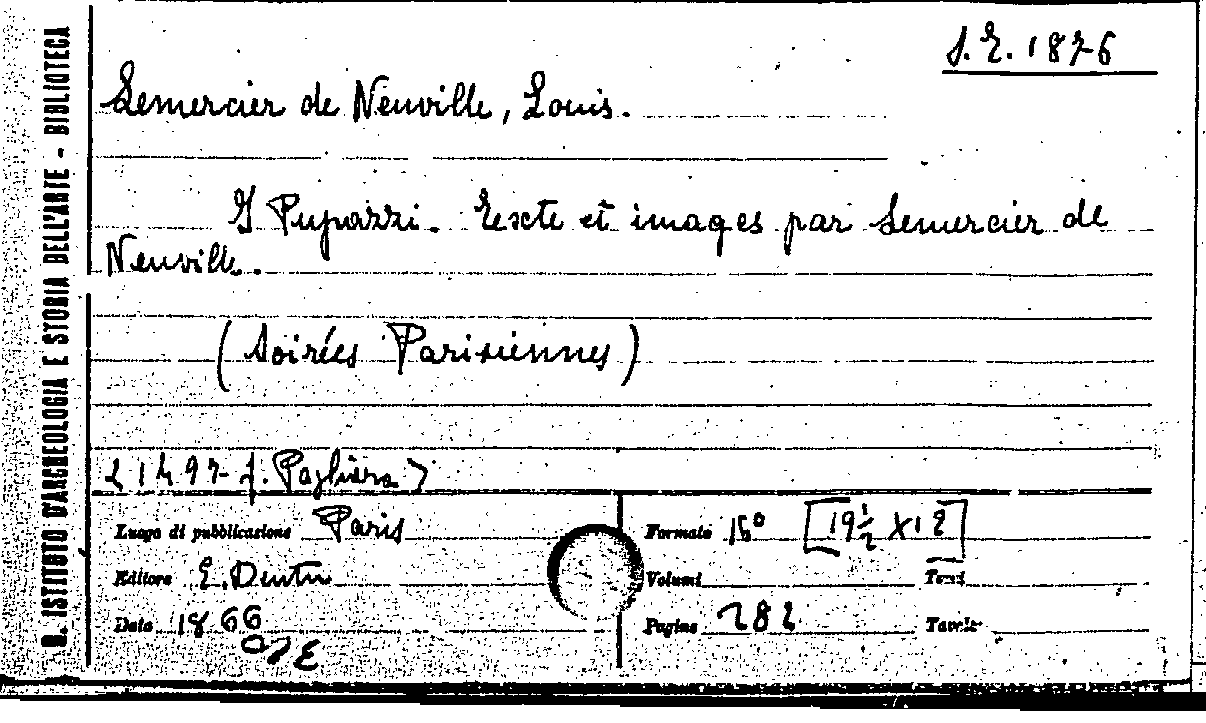 R. ISTITUTO D'ARCHEOLOGIA E STORIA DELL'ARTE - BIBLIOTECA
S. E. 1876
Lemercier de Neuville, Louis.
I Pupazzi. Texte et images par Lemercier de
Neuville.
(Soirées Parisiennes)
21497 f. Pagliara
Luogo di pubblicazione Paris
Formato 16° [19½ x 12]
Editore E. Dentu
Volumi Tomi
Data 1866
Pagine 282 Tavole